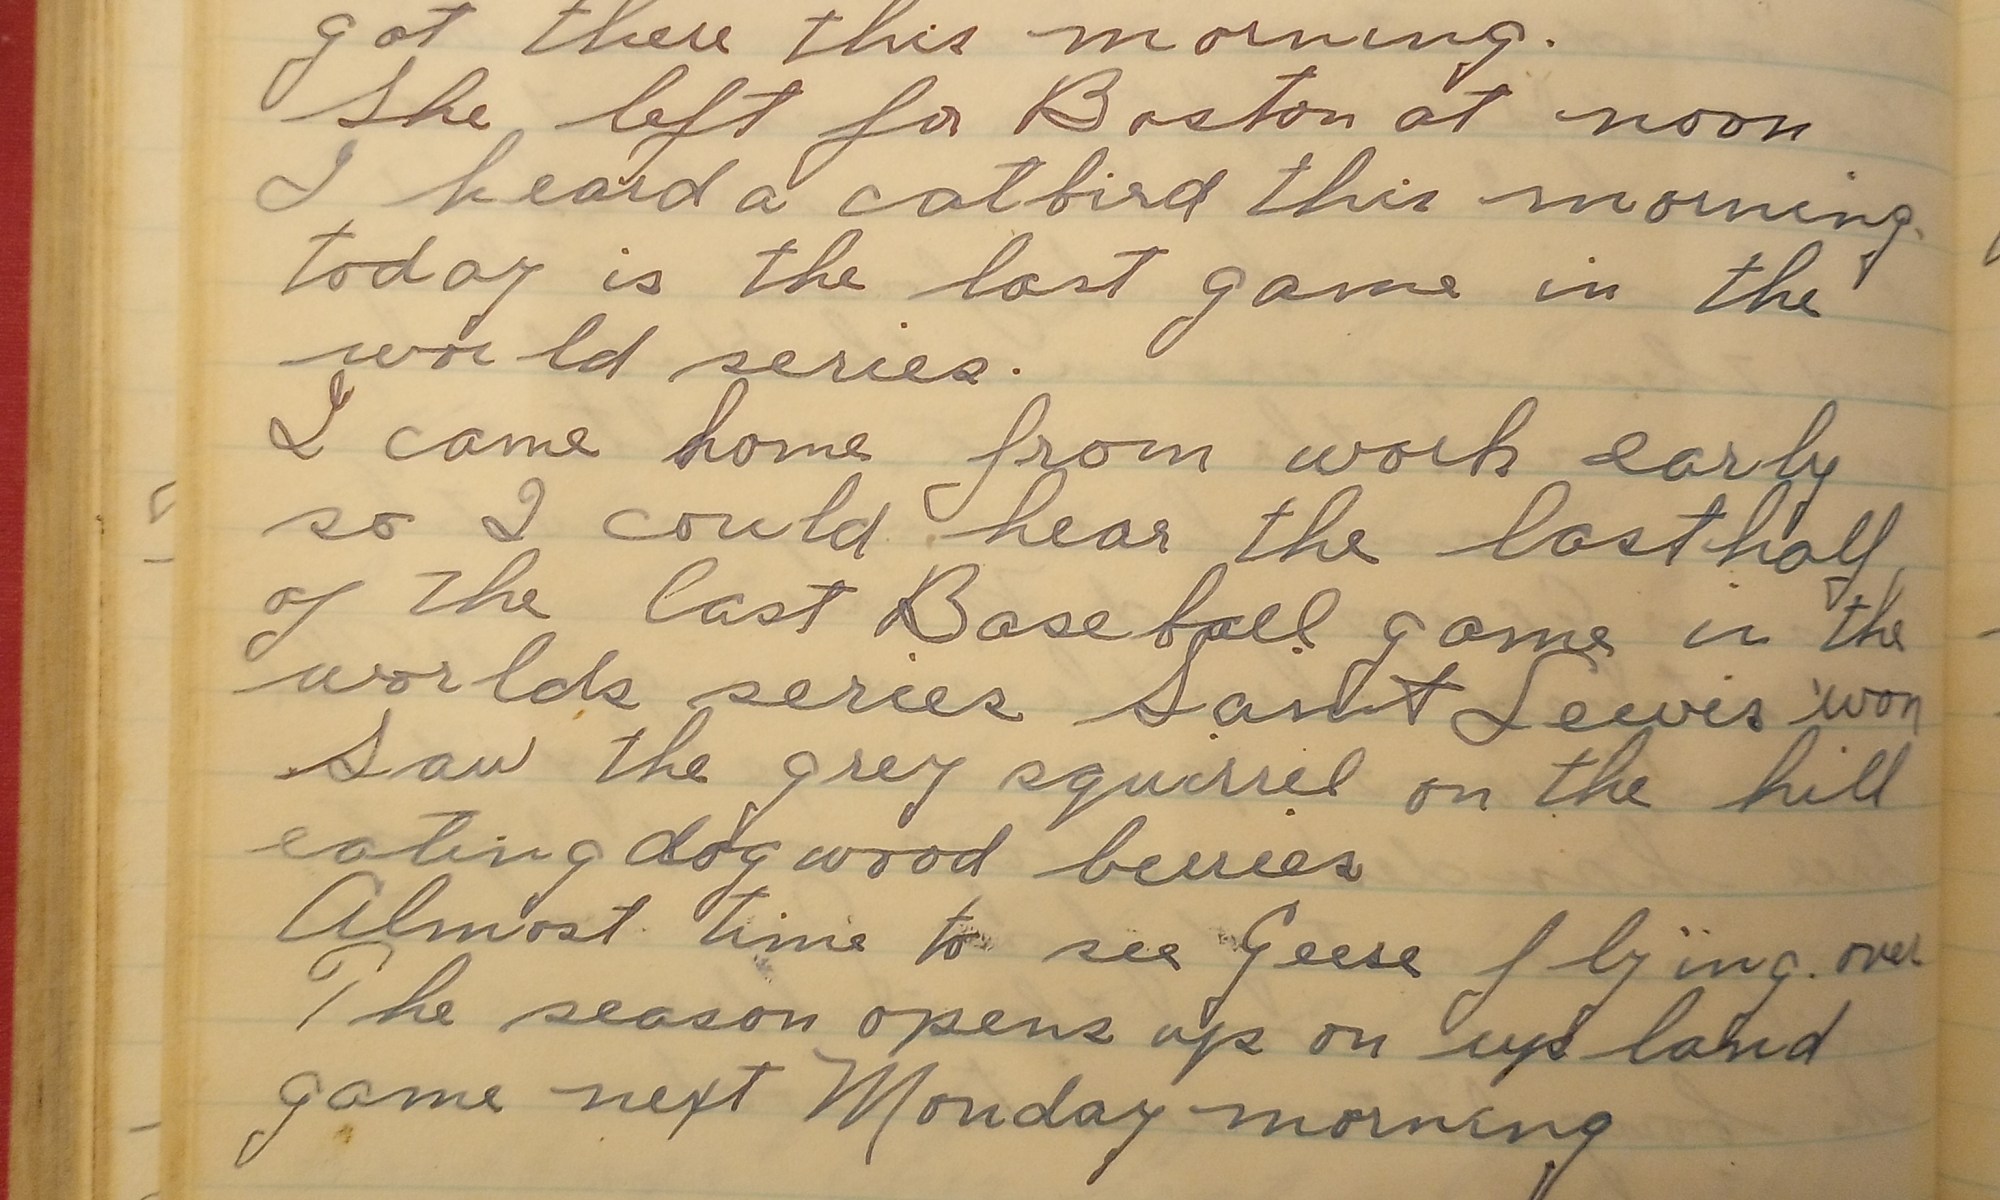 got there this morning.
She left for Boston at noon
I heard a catbird this morning.
today is the last game in the
world series.
I came home from work early
so I could hear the last half
of the last Baseball game in the
worlds series Saint Lewis won
Saw the grey squirrel on the hill
eating dogwood berries
Almost time to see Geese flying. over
The season opens up on up land
game next Monday morning